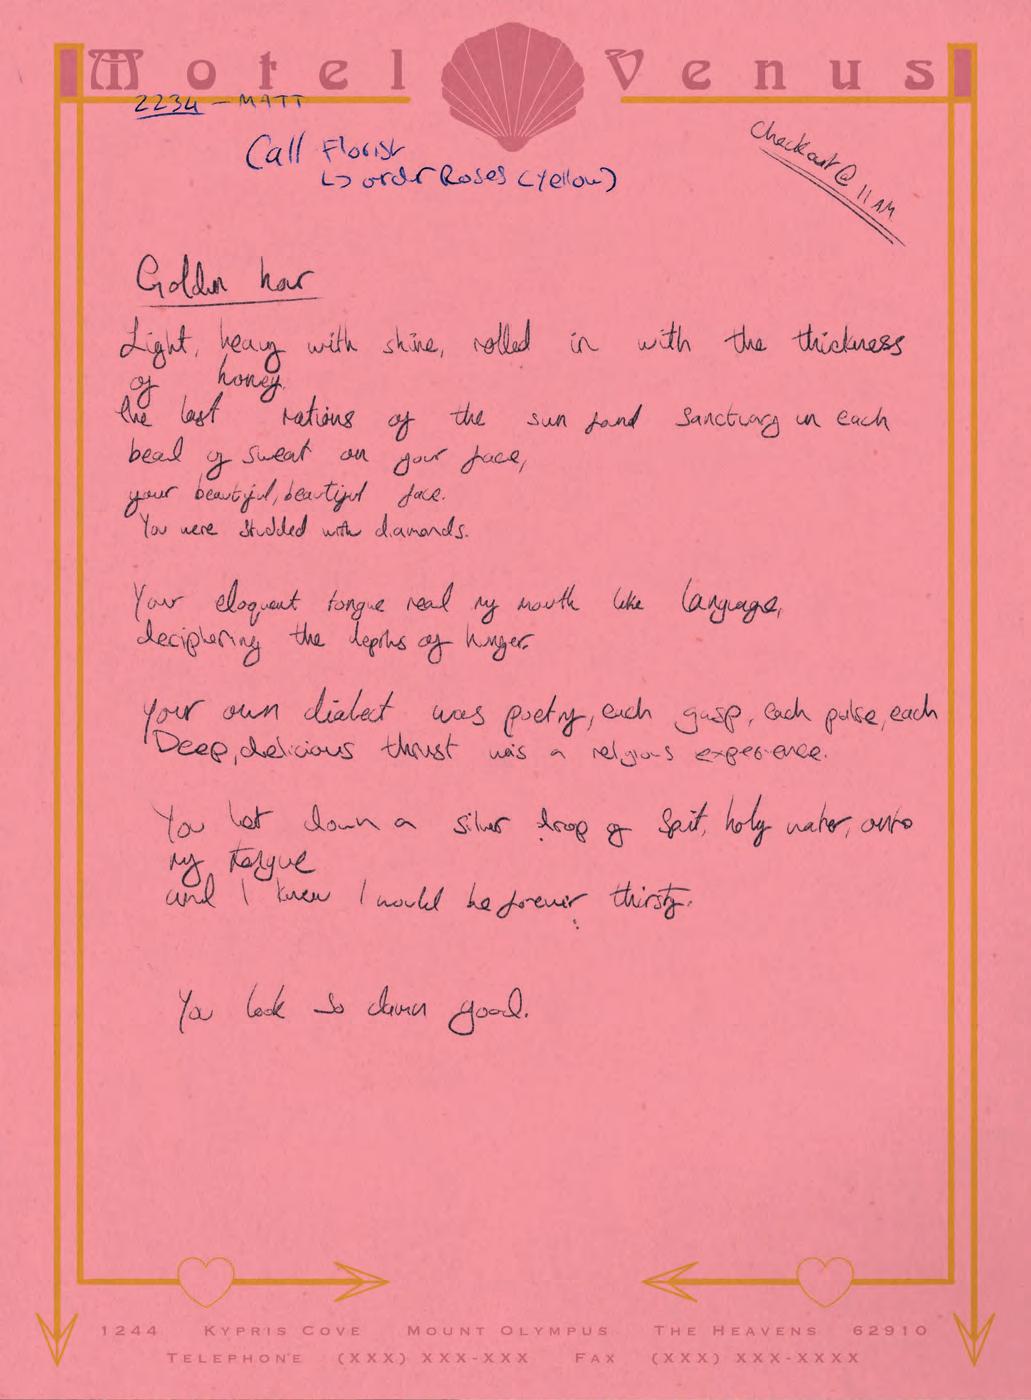 Motel Venus
2234 - MATT
Call Florist
↳ order Roses (Yellow)
Checkout @ 11 AM
Golden hour
Light, heavy with shine, rolled in with the thickness
of honey.
the last rations of the sun found sanctuary in each
bead of sweat on your face,
your beautiful, beautiful face.
You were studded with diamonds.
Your eloquent tongue read my mouth like language,
deciphering the depths of hunger.
Your own dialect was poetry, each gasp, each pulse, each
Deep, delicious thrust was a religious experience.
You let down a silver drop of Spit, holy water, onto
my tongue
and I knew I would be forever thirsty.
You look so damn good.
1244 Kypris Cove Mount Olympus The Heavens 62910
Telephone (XXX) XXX-XXX Fax (XXX) XXX-XXXX